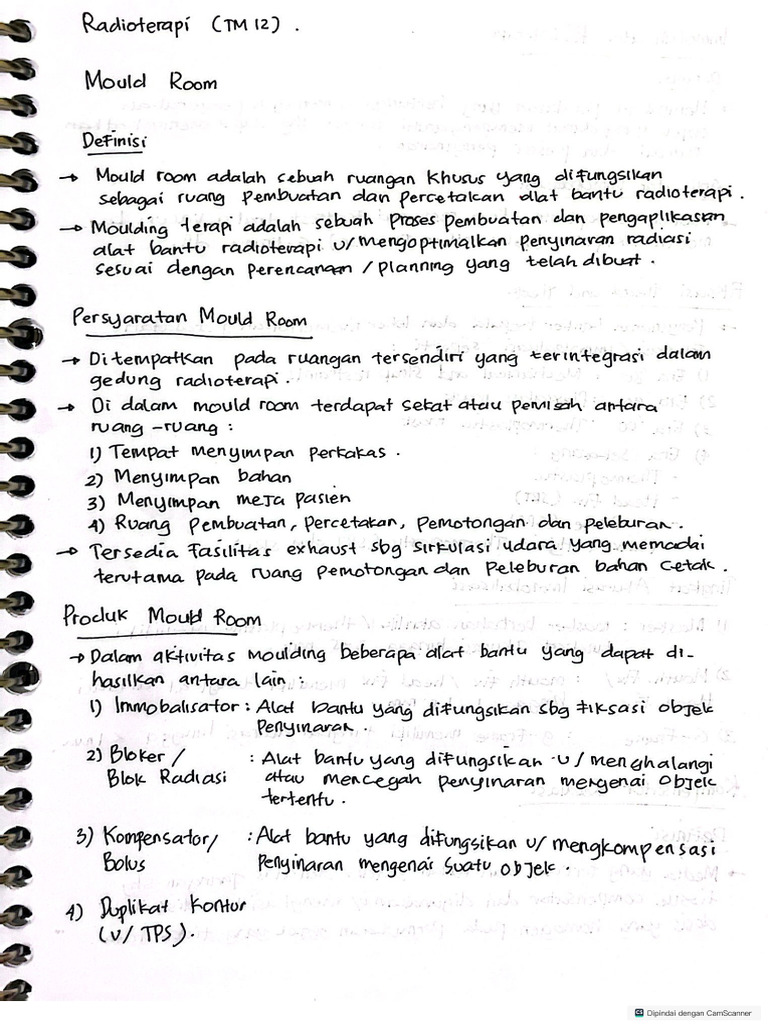 Radioterapi (TM 12).
Mould Room
Definisi
→ Mould room adalah sebuah ruangan khusus yang difungsikan
sebagai ruang pembuatan dan percetakan alat bantu radioterapi.
→ Moulding terapi adalah sebuah proses pembuatan dan pengaplikasian
alat bantu radioterapi u/ mengoptimalkan penyinaran radiasi
sesuai dengan perencanaan / planning yang telah dibuat.
Persyaratan Mould Room
→ Ditempatkan pada ruangan tersendiri yang terintegrasi dalam
gedung radioterapi.
→ Di dalam mould room terdapat sekat atau pemisah antara
ruang-ruang :
1) Tempat menyimpan perkakas.
2) Menyimpan bahan
3) Menyimpan meja pasien
4) Ruang pembuatan, percetakan, pemotongan dan peleburan.
→ Tersedia fasilitas exhaust sbg sirkulasi udara yang memadai
terutama pada ruang pemotongan dan peleburan bahan cetak.
Produk Mould Room
→ Dalam aktivitas moulding beberapa alat bantu yang dapat di-
hasilkan antara lain :
1) Immobalisator : Alat bantu yang difungsikan sbg fiksasi objek
penyinaran
2) Bloker / : Alat bantu yang difungsikan u/ menghalangi
Blok Radiasi atau mencegah penyinaran mengenai objek
tertentu.
3) Kompensator/ : Alat bantu yang difungsikan u/ mengkompensasi
Bolus penyinaran mengenai suatu objek.
4) Duplikat Kontur
(u/ TPS).
Dipindai dengan CamScanner